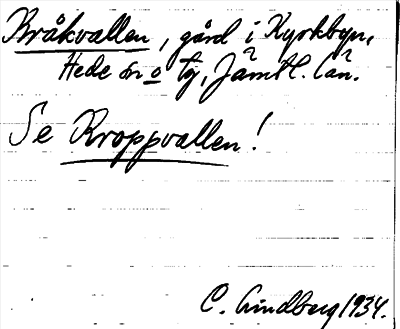 Bråkvallen, gård i Kyrkbyn,
Hede sn o tg, Jämtl. län.
Se Kroppvallen!
C. Lindberg 1934.